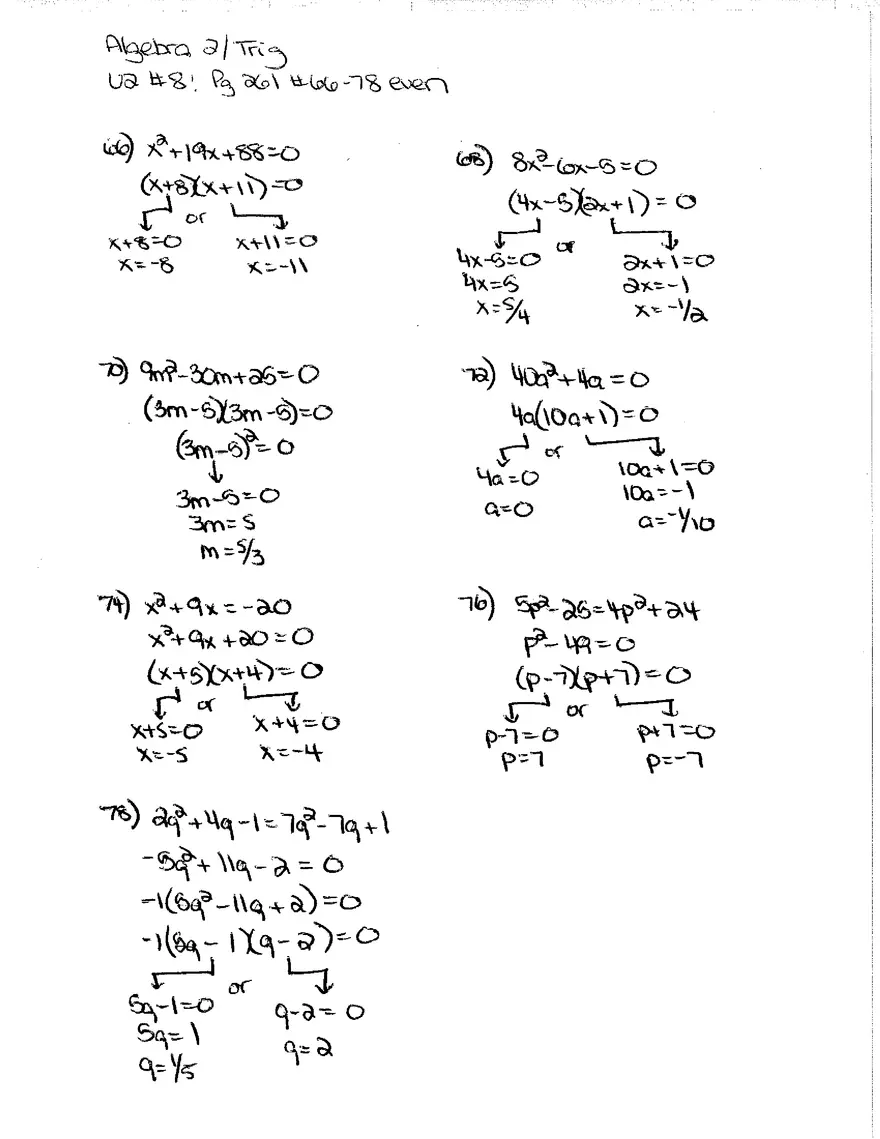 Algebra 2/Trig
U2 #8: Pg 261 #66-78 even
66) x²+19x+88=0
(x+8)(x+11)=0
or
x+8=0 x+11=0
x=-8 x=-11
68) 8x²-6x-5=0
(4x-5)(2x+1)=0
or
4x-5=0 2x+1=0
4x=5 2x=-1
x=5/4 x=-1/2
70) 9m²-30m+25=0
(3m-5)(3m-5)=0
(3m-5)²=0
3m-5=0
3m=5
m=5/3
72) 40a²+4a=0
4a(10a+1)=0
or
4a=0 10a+1=0
a=0 10a=-1
a=-1/10
74) x²+9x=-20
x²+9x+20=0
(x+5)(x+4)=0
or
x+5=0 x+4=0
x=-5 x=-4
76) 5p²-25=4p²+24
p²-49=0
(p-7)(p+7)=0
or
p-7=0 p+7=0
p=7 p=-7
78) 2q²+4q-1=7q²-7q+1
-5q²+11q-2=0
-1(5q²-11q+2)=0
-1(5q-1)(q-2)=0
or
5q-1=0 q-2=0
5q=1 q=2
q=1/5